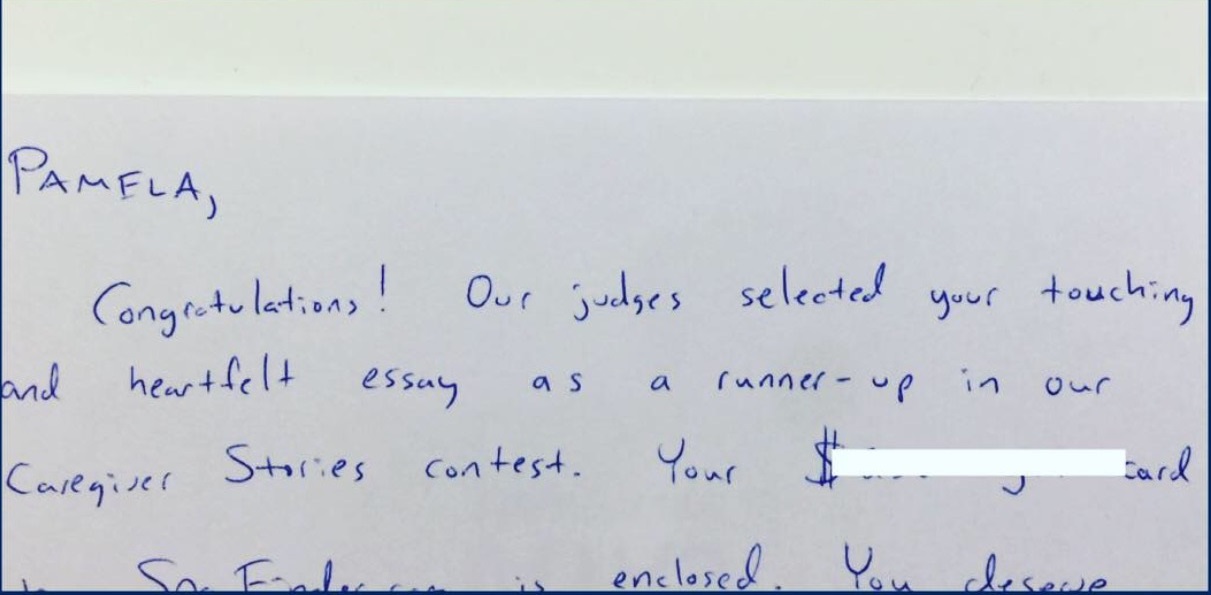 PAMELA,
Congratulations! Our judges selected your touching
and heartfelt essay as a runner-up in our
Caregiver Stories contest. Your $ card
is enclosed. You deserve